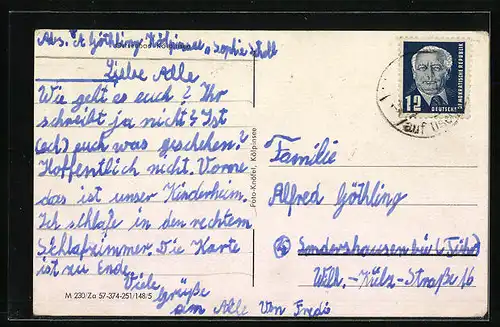 Abs. A. Göthling Kölpinsee, Sophie Scholl
Liebe Alle
Wie geht es euch? Ihr
schreibt ja nicht! Ist
(ech) euch was geschehen?
Hoffentlich nicht. Vorne
das ist unser Kinderheim.
Ich schlafe in den rechtem
Schlafzimmer. Die Karte
ist zu Ende.
Viele
Grüße
an Alle Von Fredi
M 230/Za 57-374-251/148/5
Foto-Knöfel, Kölpinsee
12
DEUTSCHE
DEMOKRATISCHE REPUBLIK
auf Used
Familie
Alfred Göthling
Sondershausen bei (Thür)
Wilh.-Külz-Straße 16